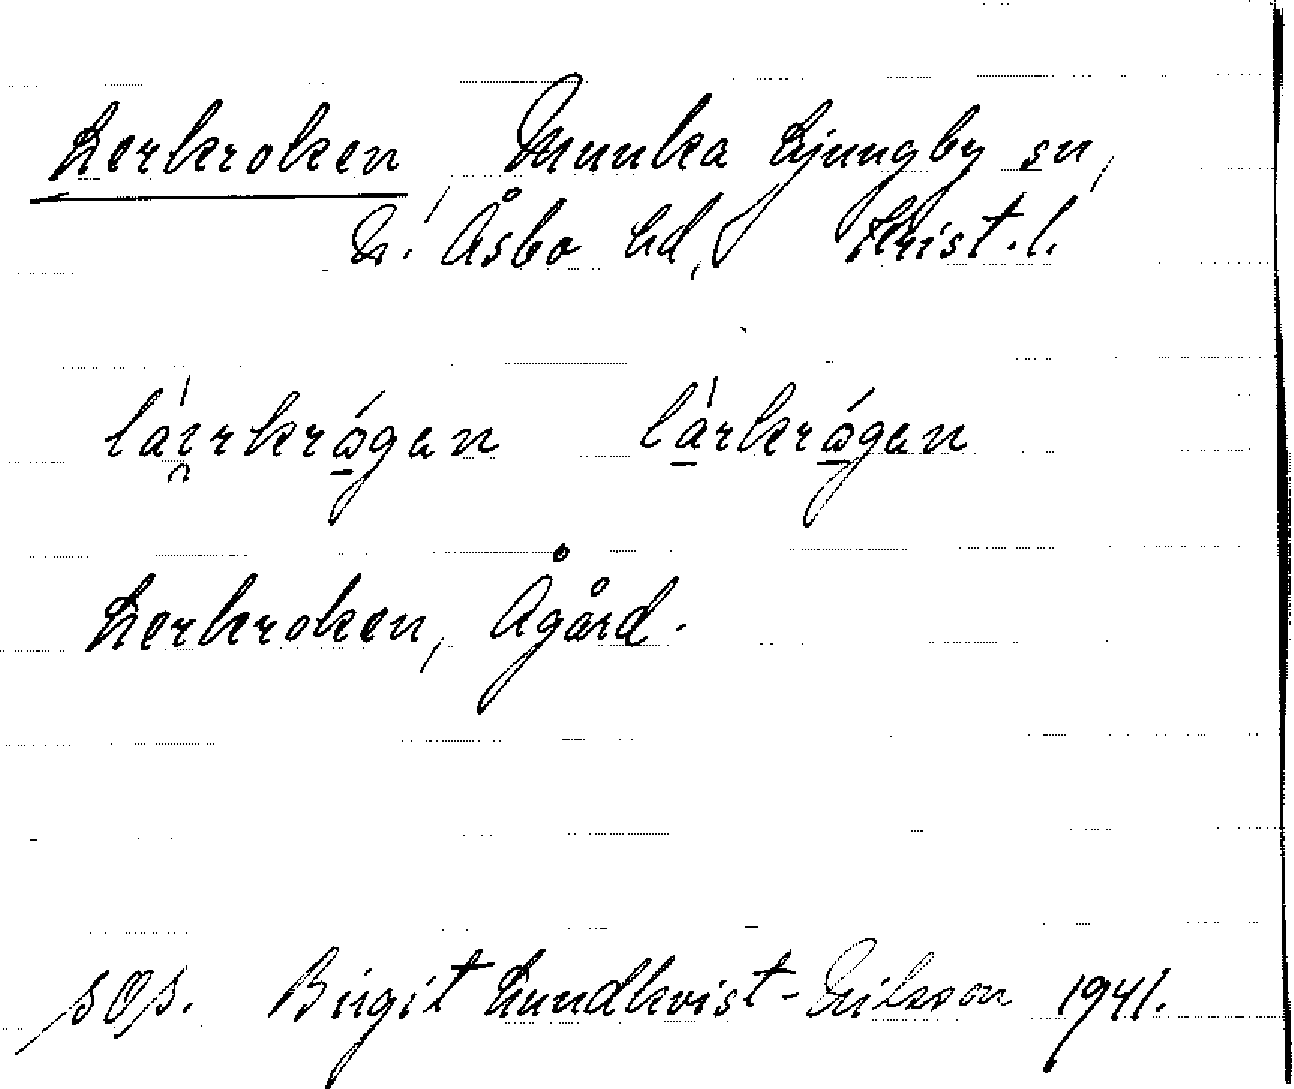 Lerkroken, Munka Ljungby sn,
N. Åsbo hd, Krist. l.
lạ́rkrǻgen
Lerkroken, Ågård.
sOs. Birgit Lundkvist-Nilsson 1941.